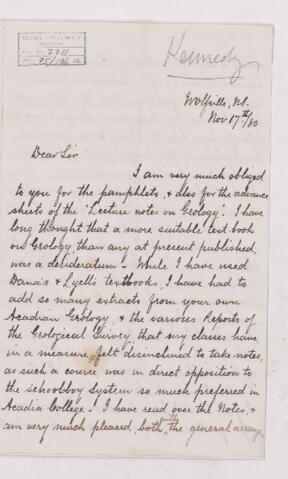 McGILL UNIVERSITY
ARCHIVES
ACC. NO. 2211
REF. 75/106a
Kennedy
Wolfville, N.S.
Nov 17th/80
Dear Sir
I am very much obliged
to you for the pamphlets, & also for the advance
sheets of the "Lecture notes on Geology". I have
long thought that a more suitable text book
on Geology than any at present published,
was a desideratum – While I have used
Dana's & Lyell's textbooks, I have had to
add so many extracts from your own
Acadian Geology, & the various Reports of
the Geological Survey, that my classes have
in a measure felt disinclined to take notes,
as such a course was in direct opposition to
the schoolboy system so much preferred in
Acadia College – I have read over the Notes, &
am very much pleased, both with the general arrange